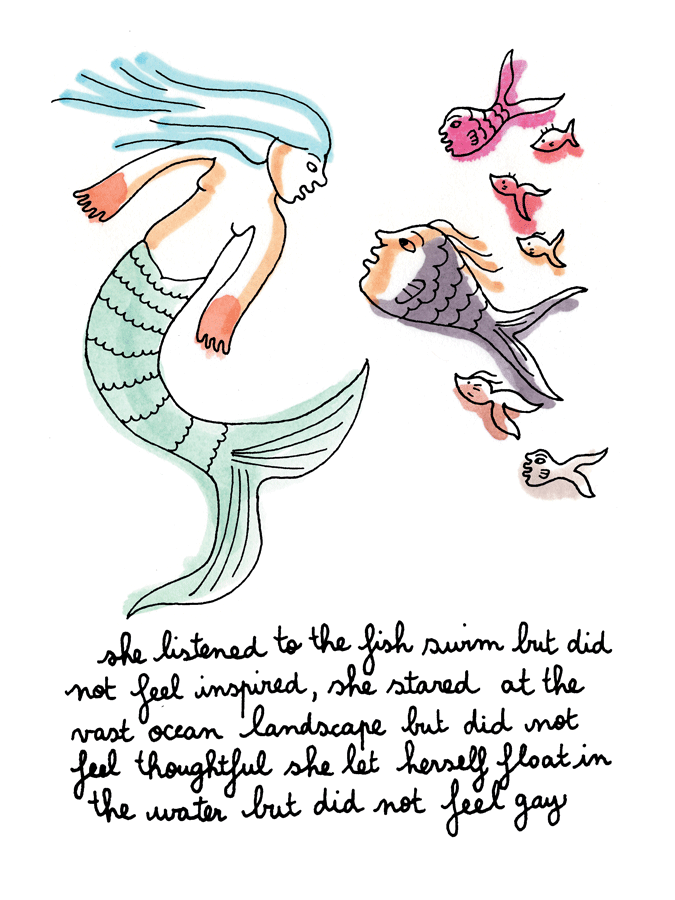 she listened to the fish swim but did
not feel inspired, she stared at the
vast ocean landscape but did not
feel thoughtful she let herself float in
the water but did not feel gay